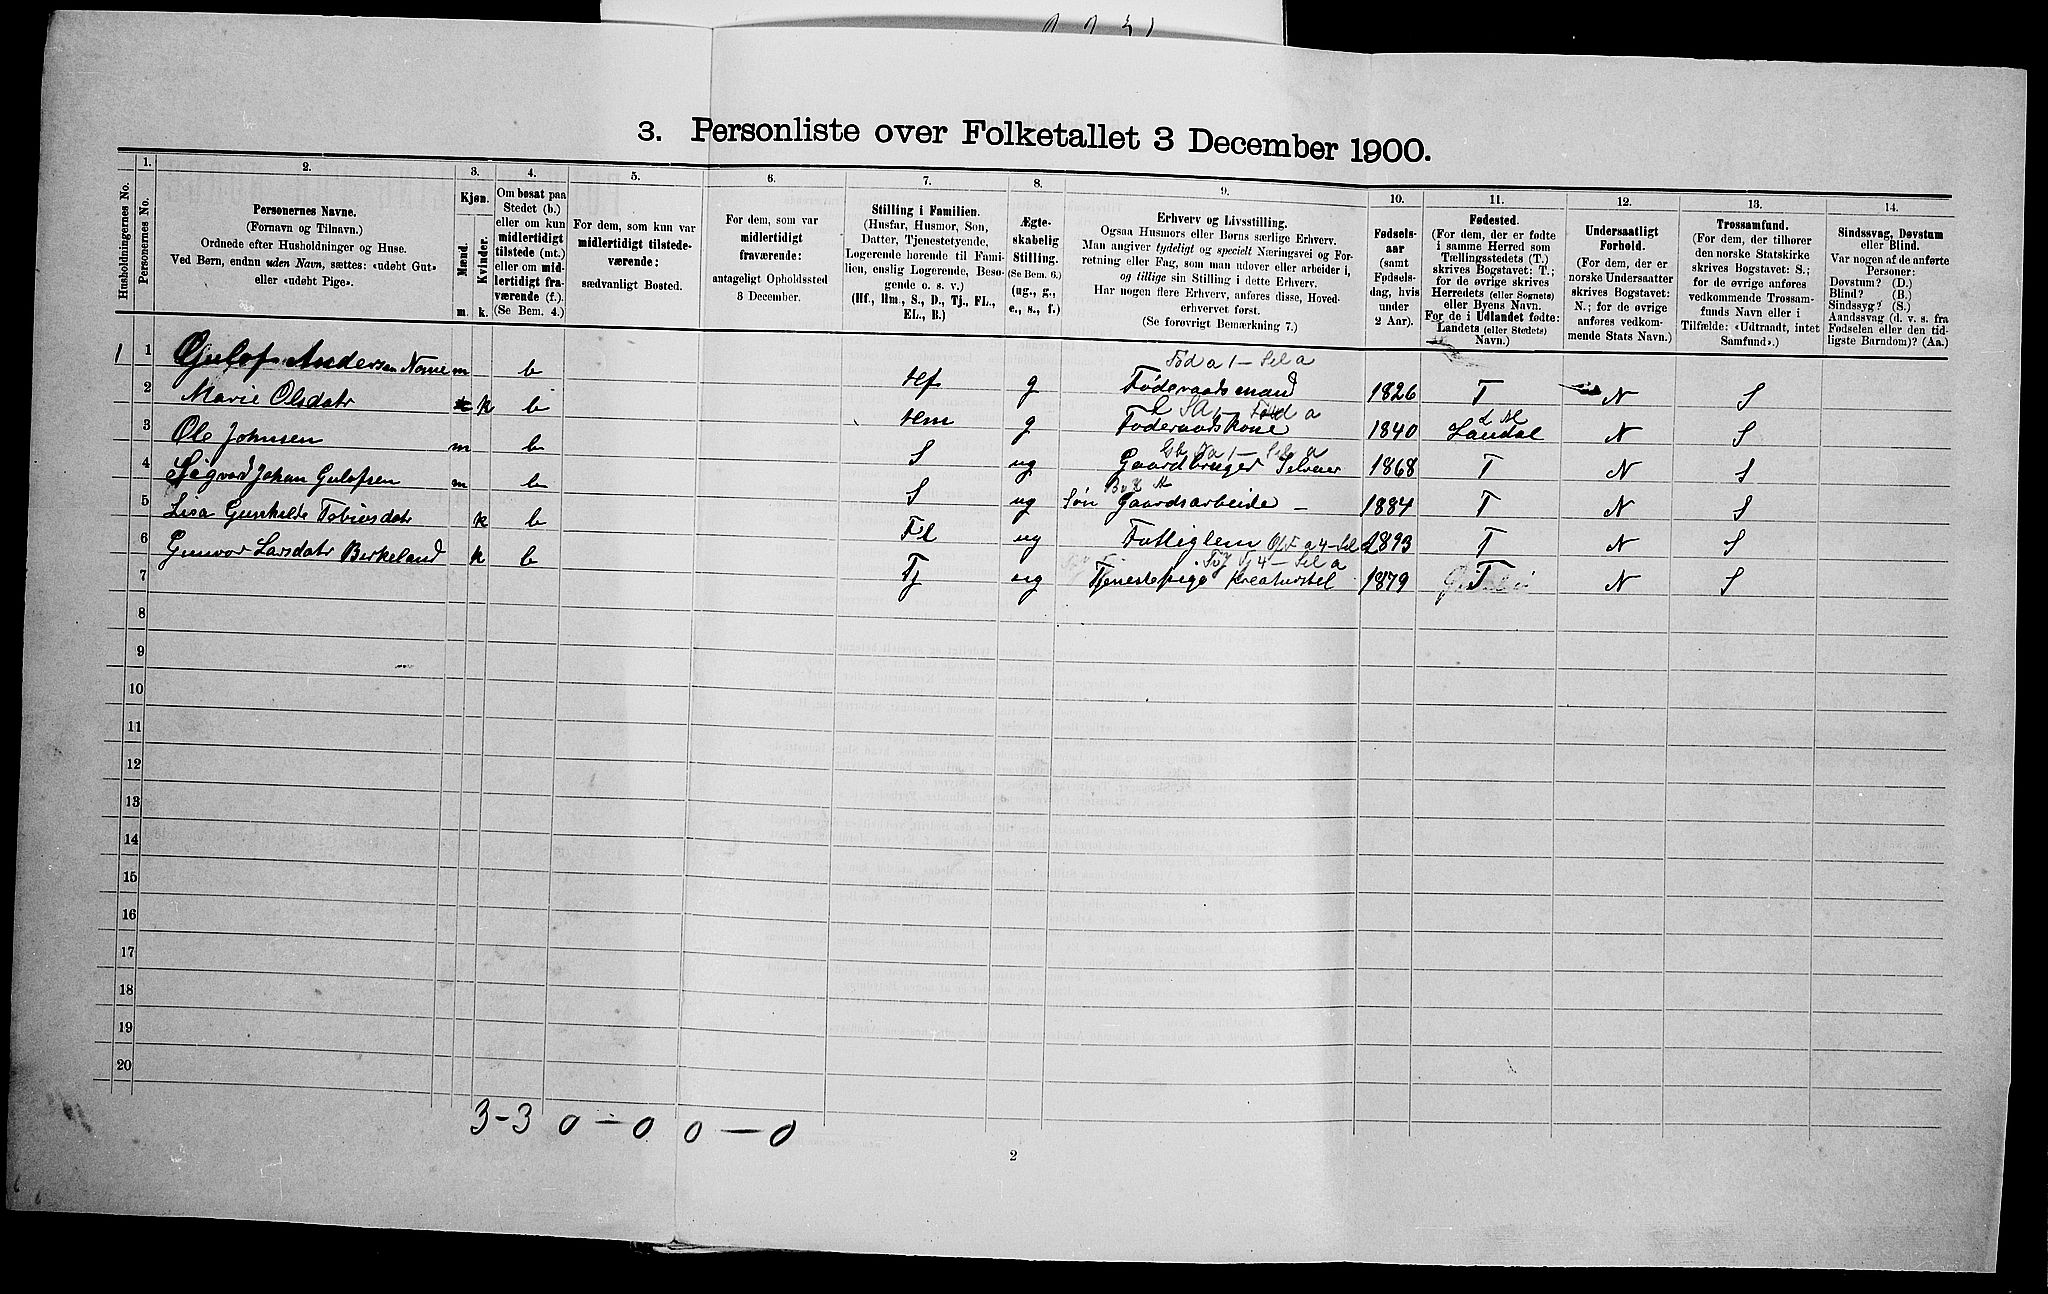 3. Personliste over Folketallet 3 December 1900.
Husholdningernes No.
1. Personernes No.
2. Personernes Navne.
(Fornavn og Tilnavn.)
Ordnede efter Husholdninger og Huse.
Ved Børn, endnu uden Navn, sættes: «udøbt Gut»
eller «udøbt Pige».
3. Kjøn.
Mænd. Kvinder.
m. k.
4. Om bosat paa
Stedet (b.)
eller om kun
midlertidigt
tilstede (mt.)
eller om mid-
lertidigt fra-
værende (f.).
(Se Bem. 4.)
5. For dem, som kun var
midlertidigt tilstede-
værende:
sædvanligt Bosted.
6. For dem, som var
midlertidigt
fraværende:
antageligt Opholdssted
3 December.
7. Stilling i Familien.
(Husfar, Husmor, Søn,
Datter, Tjenestetyende,
Logerende hørende til Fami-
lien, enslig Logerende, Besø-
gende o. s. v.)
(Hf., Hm., S., D., Tj., FL.,
EL., B.)
8. Ægte-
skabelig
Stilling.
(Se Bem. 6.)
(ug., g.,
e., s., f.)
9. Erhverv og Livsstilling.
Ogsaa Husmors eller Børns særlige Erhverv.
Man angiver tydeligt og specielt Næringsvei og For-
retning eller Fag, som man udøver eller arbeider i,
og tillige sin Stilling i dette Erhverv.
Har nogen flere Erhverv, anføres disse, Hoved-
erhvervet først.
(Se forøvrigt Bemærkning 7.)
10. Fødsels-
aar
(samt
Fødsels-
dag, hvis
under
2 Aar).
11. Fødested.
(For dem, der er fødte
i samme Herred som
Tællingsstedets (T.)
skrives Bogstavet: T.;
for de øvrige skrives
Herredets (eller Sognets)
eller Byens Navn.
For de i Udlandet fødte:
Landets (eller Stedets)
Navn.)
12. Undersaatligt
Forhold.
(For dem, der er
norske Undersaatter
skrives Bogstavet:
N.; for de øvrige
anføres vedkom-
mende Stats Navn.)
13. Trossamfund.
(For dem, der tilhører
den norske Statskirke
skrives Bogstavet: S.;
for de øvrige anføres
vedkommende Trossam-
funds Navn eller i
Tilfælde: «Udtraadt, intet
Samfund».)
14. Sindssvag, Døvstum
eller Blind.
Var nogen af de anførte
Personer:
Døvstum? (D.)
Blind? (B.)
Sindssyg? (S.)
Aandssvag (d. v. s. fra
Fødselen eller den tid-
ligste Barndom)? (Aa.)
Fød a 1 - Sel a
1 1 Gulof Andersen Nome m b Hf g Føderaadsmand 1826 T N S
2 Marie Olsdatr k b Hm g Føderaadskone 1840 Laudal N S
3 Ole Johnsen m b S ug Gaardbruger Selveier 1868 T N S
4 Sigvad Johan Gulofsen m b S ug Søn Gaardsarbeide - 1884 T N S
5 Lisa Gunhilde Tobiasdatr k b Fl ug Fattiglem 1893 T N S
6 Gunvor Larsdatr Birkeland k b Tj ug Tjenestepige Kreaturstel 1879 T N S
7
8
9
10
11
12
13
14
15
16
17
18
19
20
3-3 0-0 0-0
2